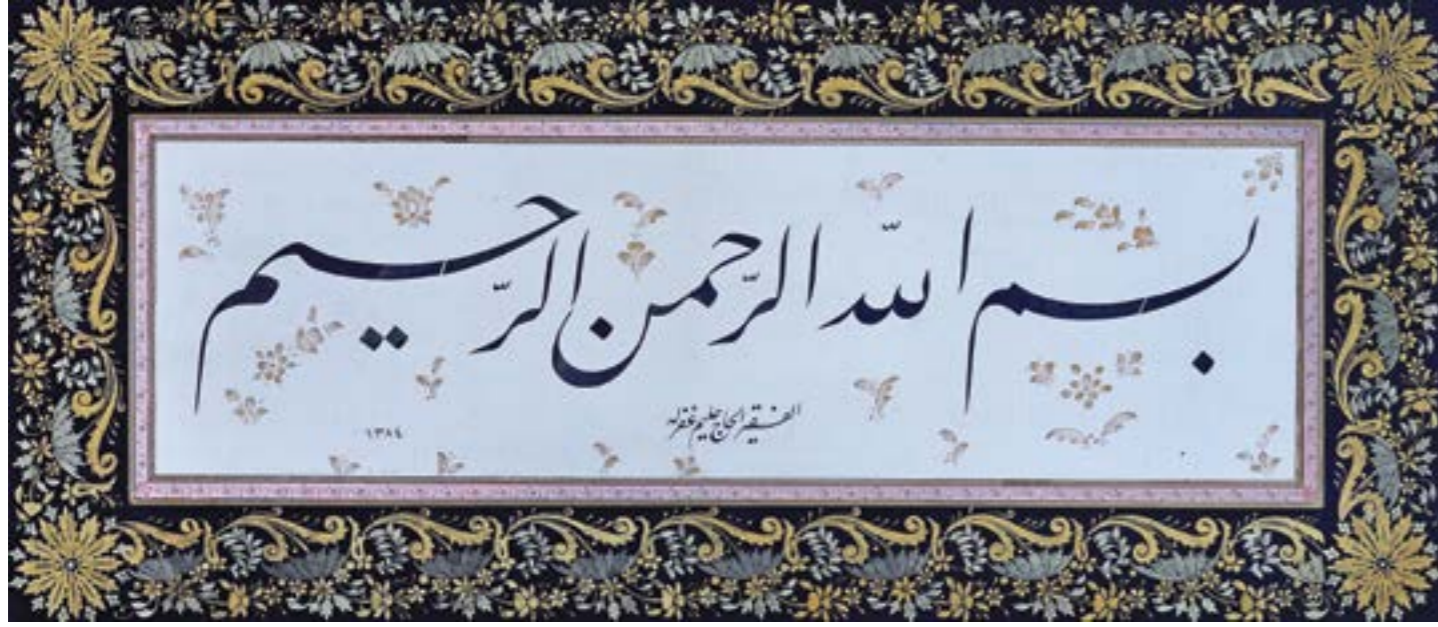 بسم الله الرّحمن الرّحيم
الفقير الحاج حليم غفرله
١٣٨٤